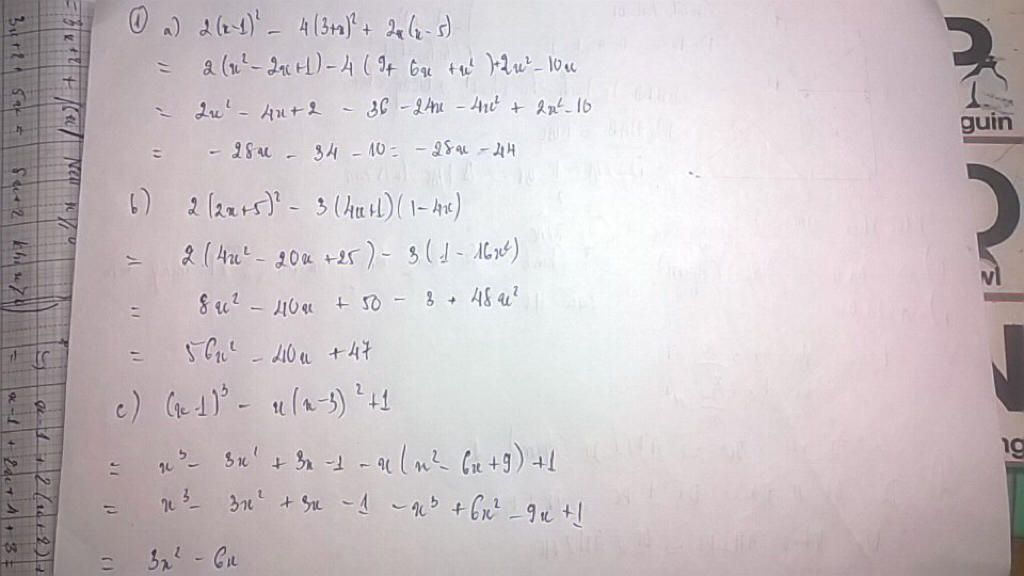 ① a) 2(x-1)² - 4(3+x)² + 2x(x-5)
= 2(x² - 2x+1) - 4(9+ 6x + x²) + 2x² - 10x
= 2x² - 4x + 2 - 36 - 24x - 4x² + 2x² - 10
= - 28x - 34 - 10 = - 28x - 44
b) 2(2x+5)² - 3(4x+1)(1-4x)
= 2(4x² - 20x +25) - 3(1 - 16x²)
= 8x² - 40x + 50 - 3 + 48x²
= 56x² - 40x + 47
c) (x-1)³ - x(x-3)² +1
= x³ - 3x² + 3x - 1 - x(x² - 6x + 9) + 1
= x³ - 3x² + 3x - 1 - x³ + 6x² - 9x + 1
= 3x² - 6x
guin
wl